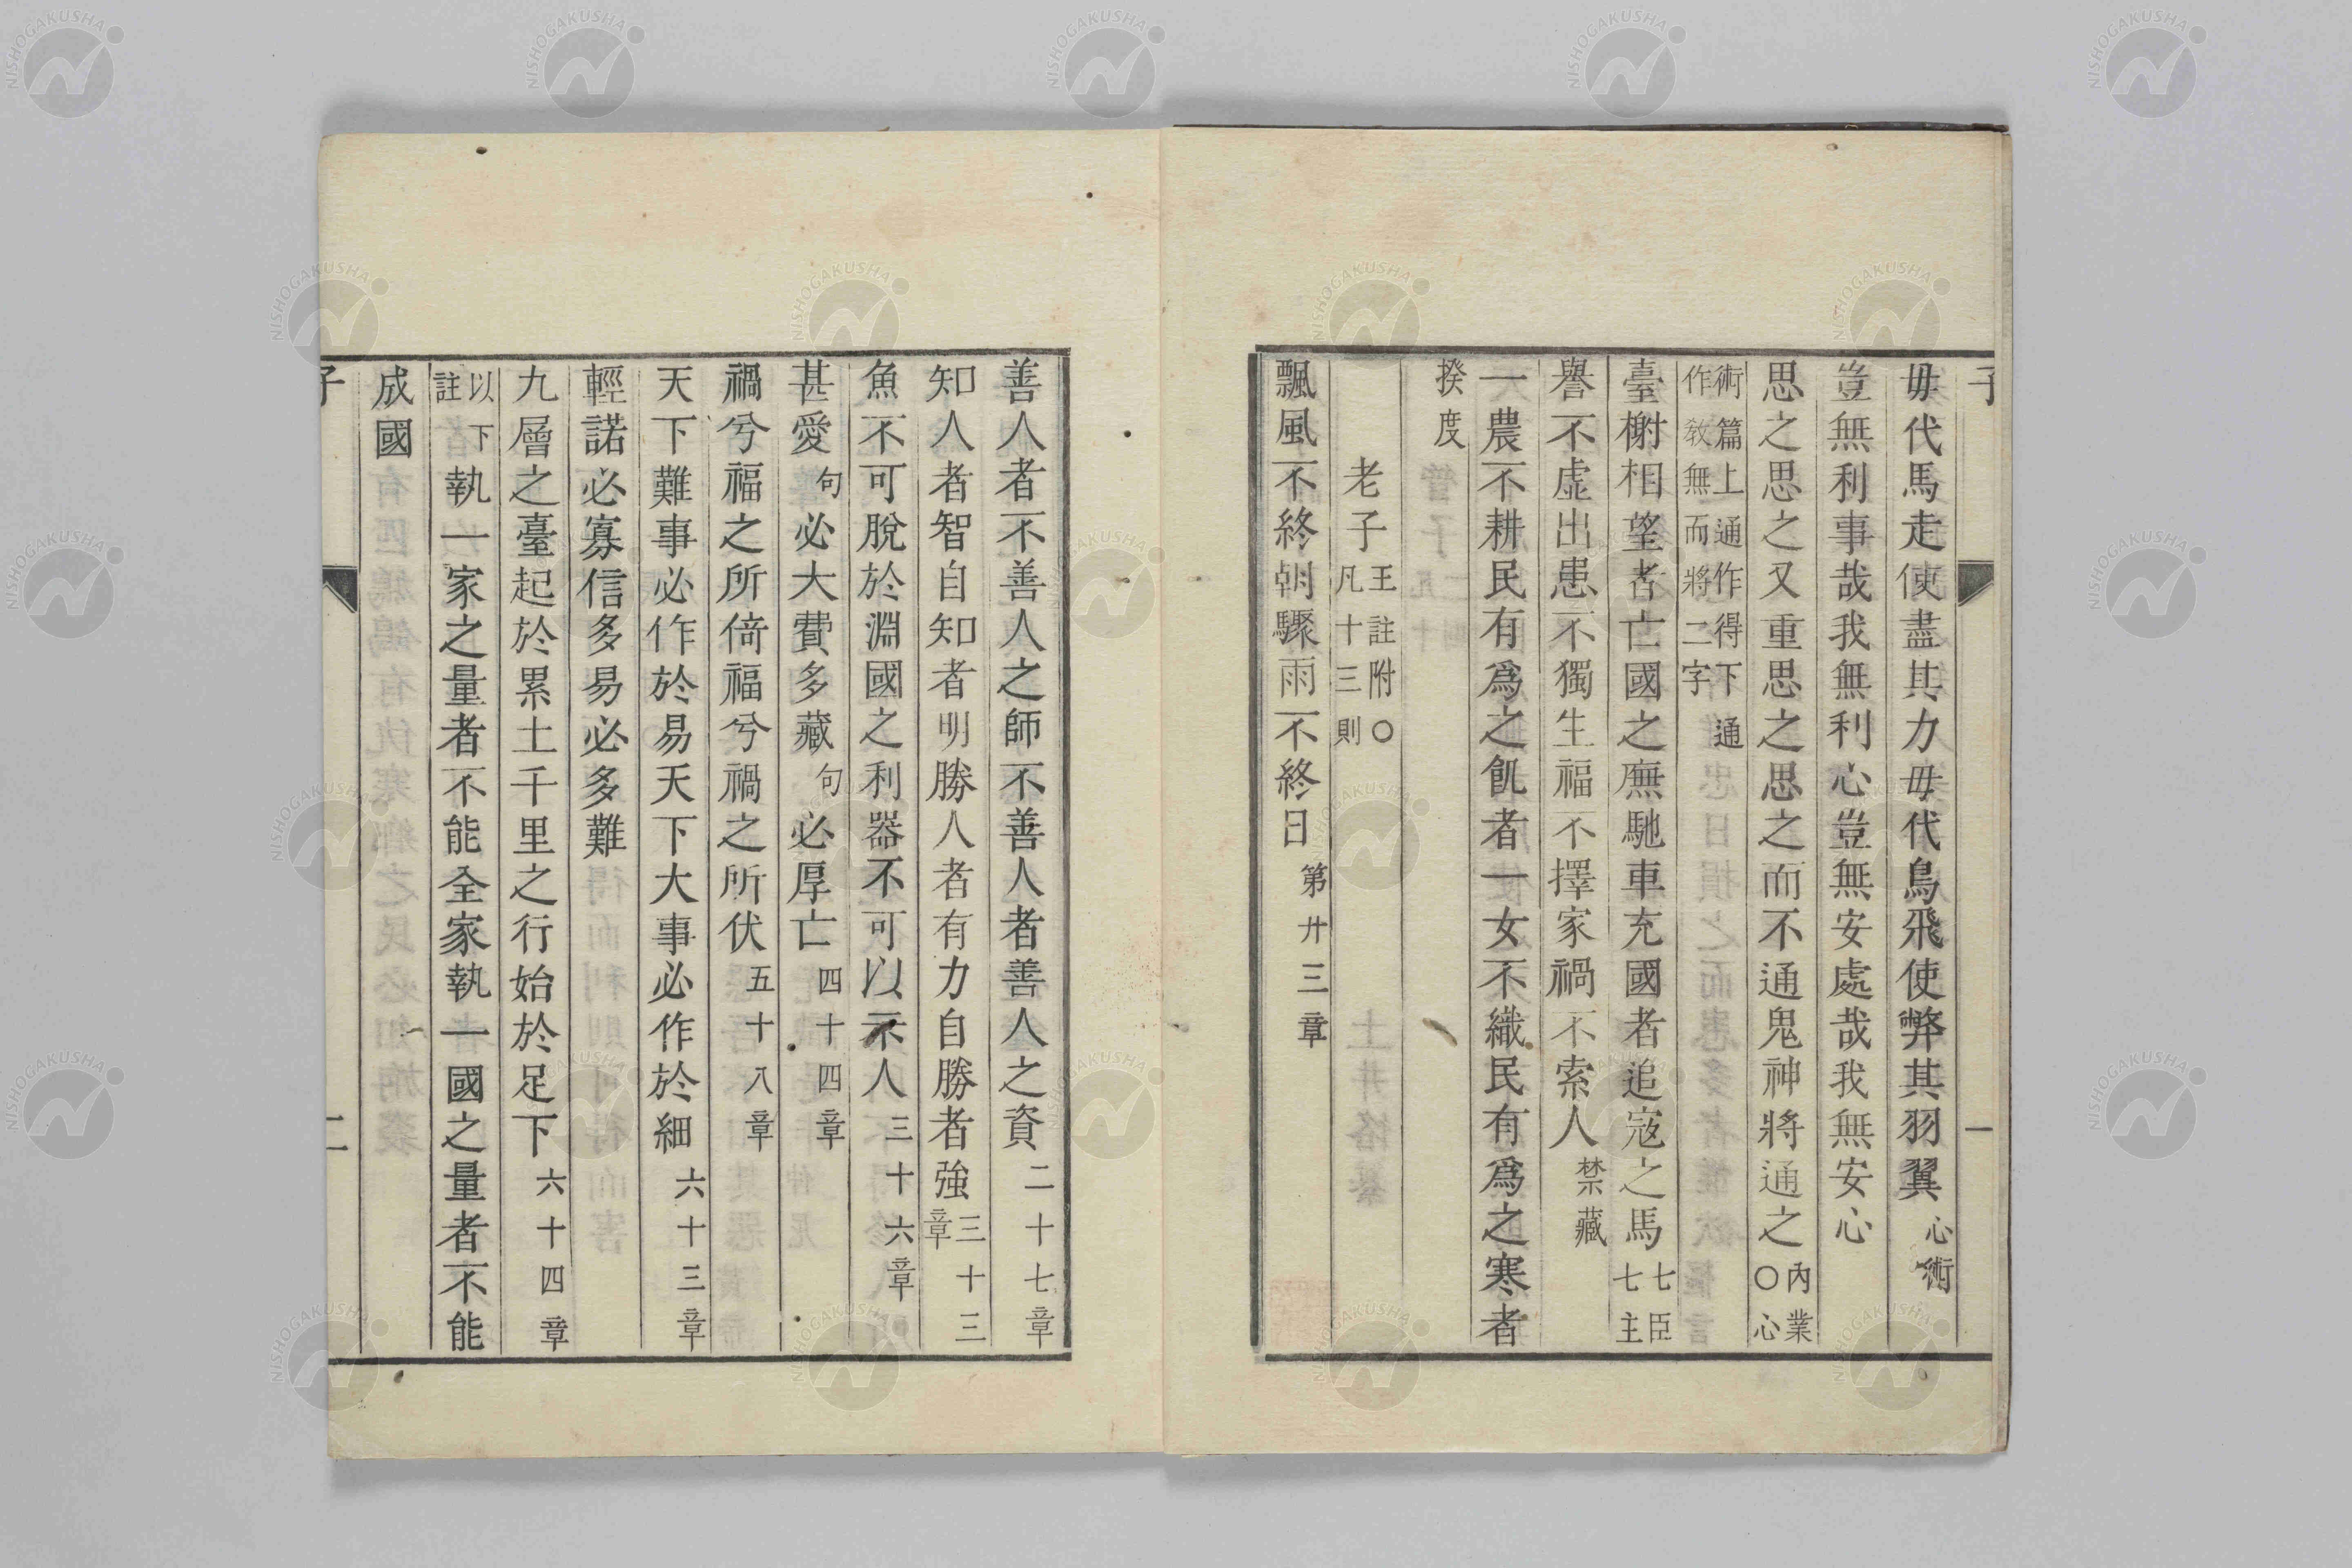 毋代馬走使盡其力毋代鳥飛使弊其羽翼心術
豈無利事哉我無利心豈無安處哉我無安心
思之思之又重思之思之而不通鬼神將通之內業○心
術篇上通作得下通作敎無而將二字
臺榭相望者亡國之廡馳車充國者追寇之馬七臣七主
譽不虛出患不獨生福不擇家禍不索人禁藏
一農不耕民有爲之飢者一女不織民有爲之寒者
揆度
老子王註附○凡十三則
飄風不終朝驟雨不終日第廾三章
一
善人者不善人之師不善人者善人之資二十七章
知人者智自知者明勝人者有力自勝者強三十三章
魚不可脫於淵國之利器不可以示人三十六章
甚愛句必大費多藏句必厚亡四十四章
禍兮福之所倚福兮禍之所伏五十八章
天下難事必作於易天下大事必作於細六十三章
輕諾必寡信多易必多難
九層之臺起於累土千里之行始於足下六十四章
以下註執一家之量者不能全家執一國之量者不能
成國
子
二
NISHOGAKUSHA